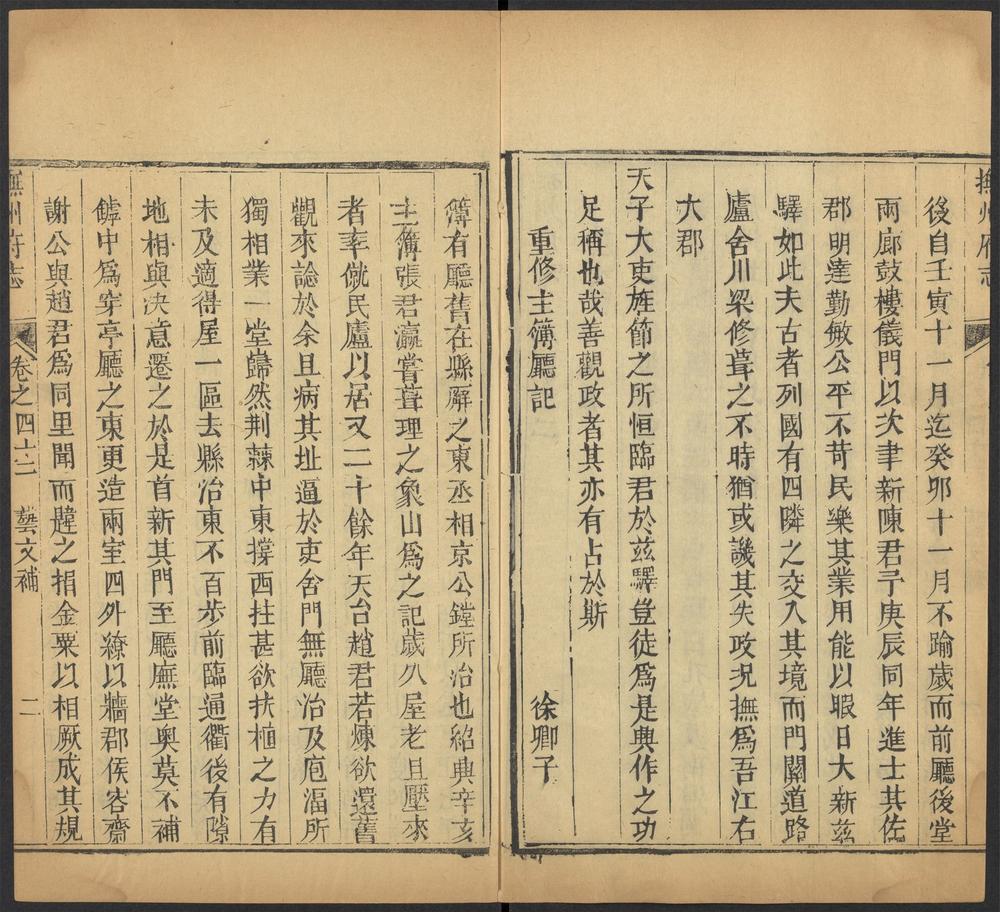 撫州府志
後自壬寅十一月迄癸卯十一月不踰歲而前廳後堂
兩廊鼓樓儀門以次聿新陳君子庚辰同年進士其佐
郡明達勤敏公平不苛民樂其業用能以暇日大新茲
驛如此夫古者列國有四隣之交入其境而門關道路
廬舍川梁修葺之不時猶或譏其失政況撫爲吾江右
大郡
天子大吏旌節之所恒臨君於茲驛豈徒爲是興作之功
足稱也哉善觀政者其亦有占於斯
重修主簿廳記 徐卿子
簿有廳舊在縣廨之東丞相京公鏜所治也紹興辛亥
主簿張君瀛嘗葺理之象山爲之記歲久屋老且壓來
者率僦民廬以居又二十餘年天台趙君若煉欲還舊
觀來諗於余且病其址逼於吏舍門無廳治及庖湢所
獨相業一堂巋然荆棘中東撐西拄甚欲扶植之力有
未及適得屋一區去縣治東不百步前臨通衢後有隙
地相與決意遷之於是首新其門至廳廡堂奧莫不補
罅中爲穿亭廳之東更造兩室四外繚以牆郡侯峇齋
謝公與趙君爲同里聞而韙之捐金粟以相厥成其規
撫州府志 卷之四十二 藝文補 二